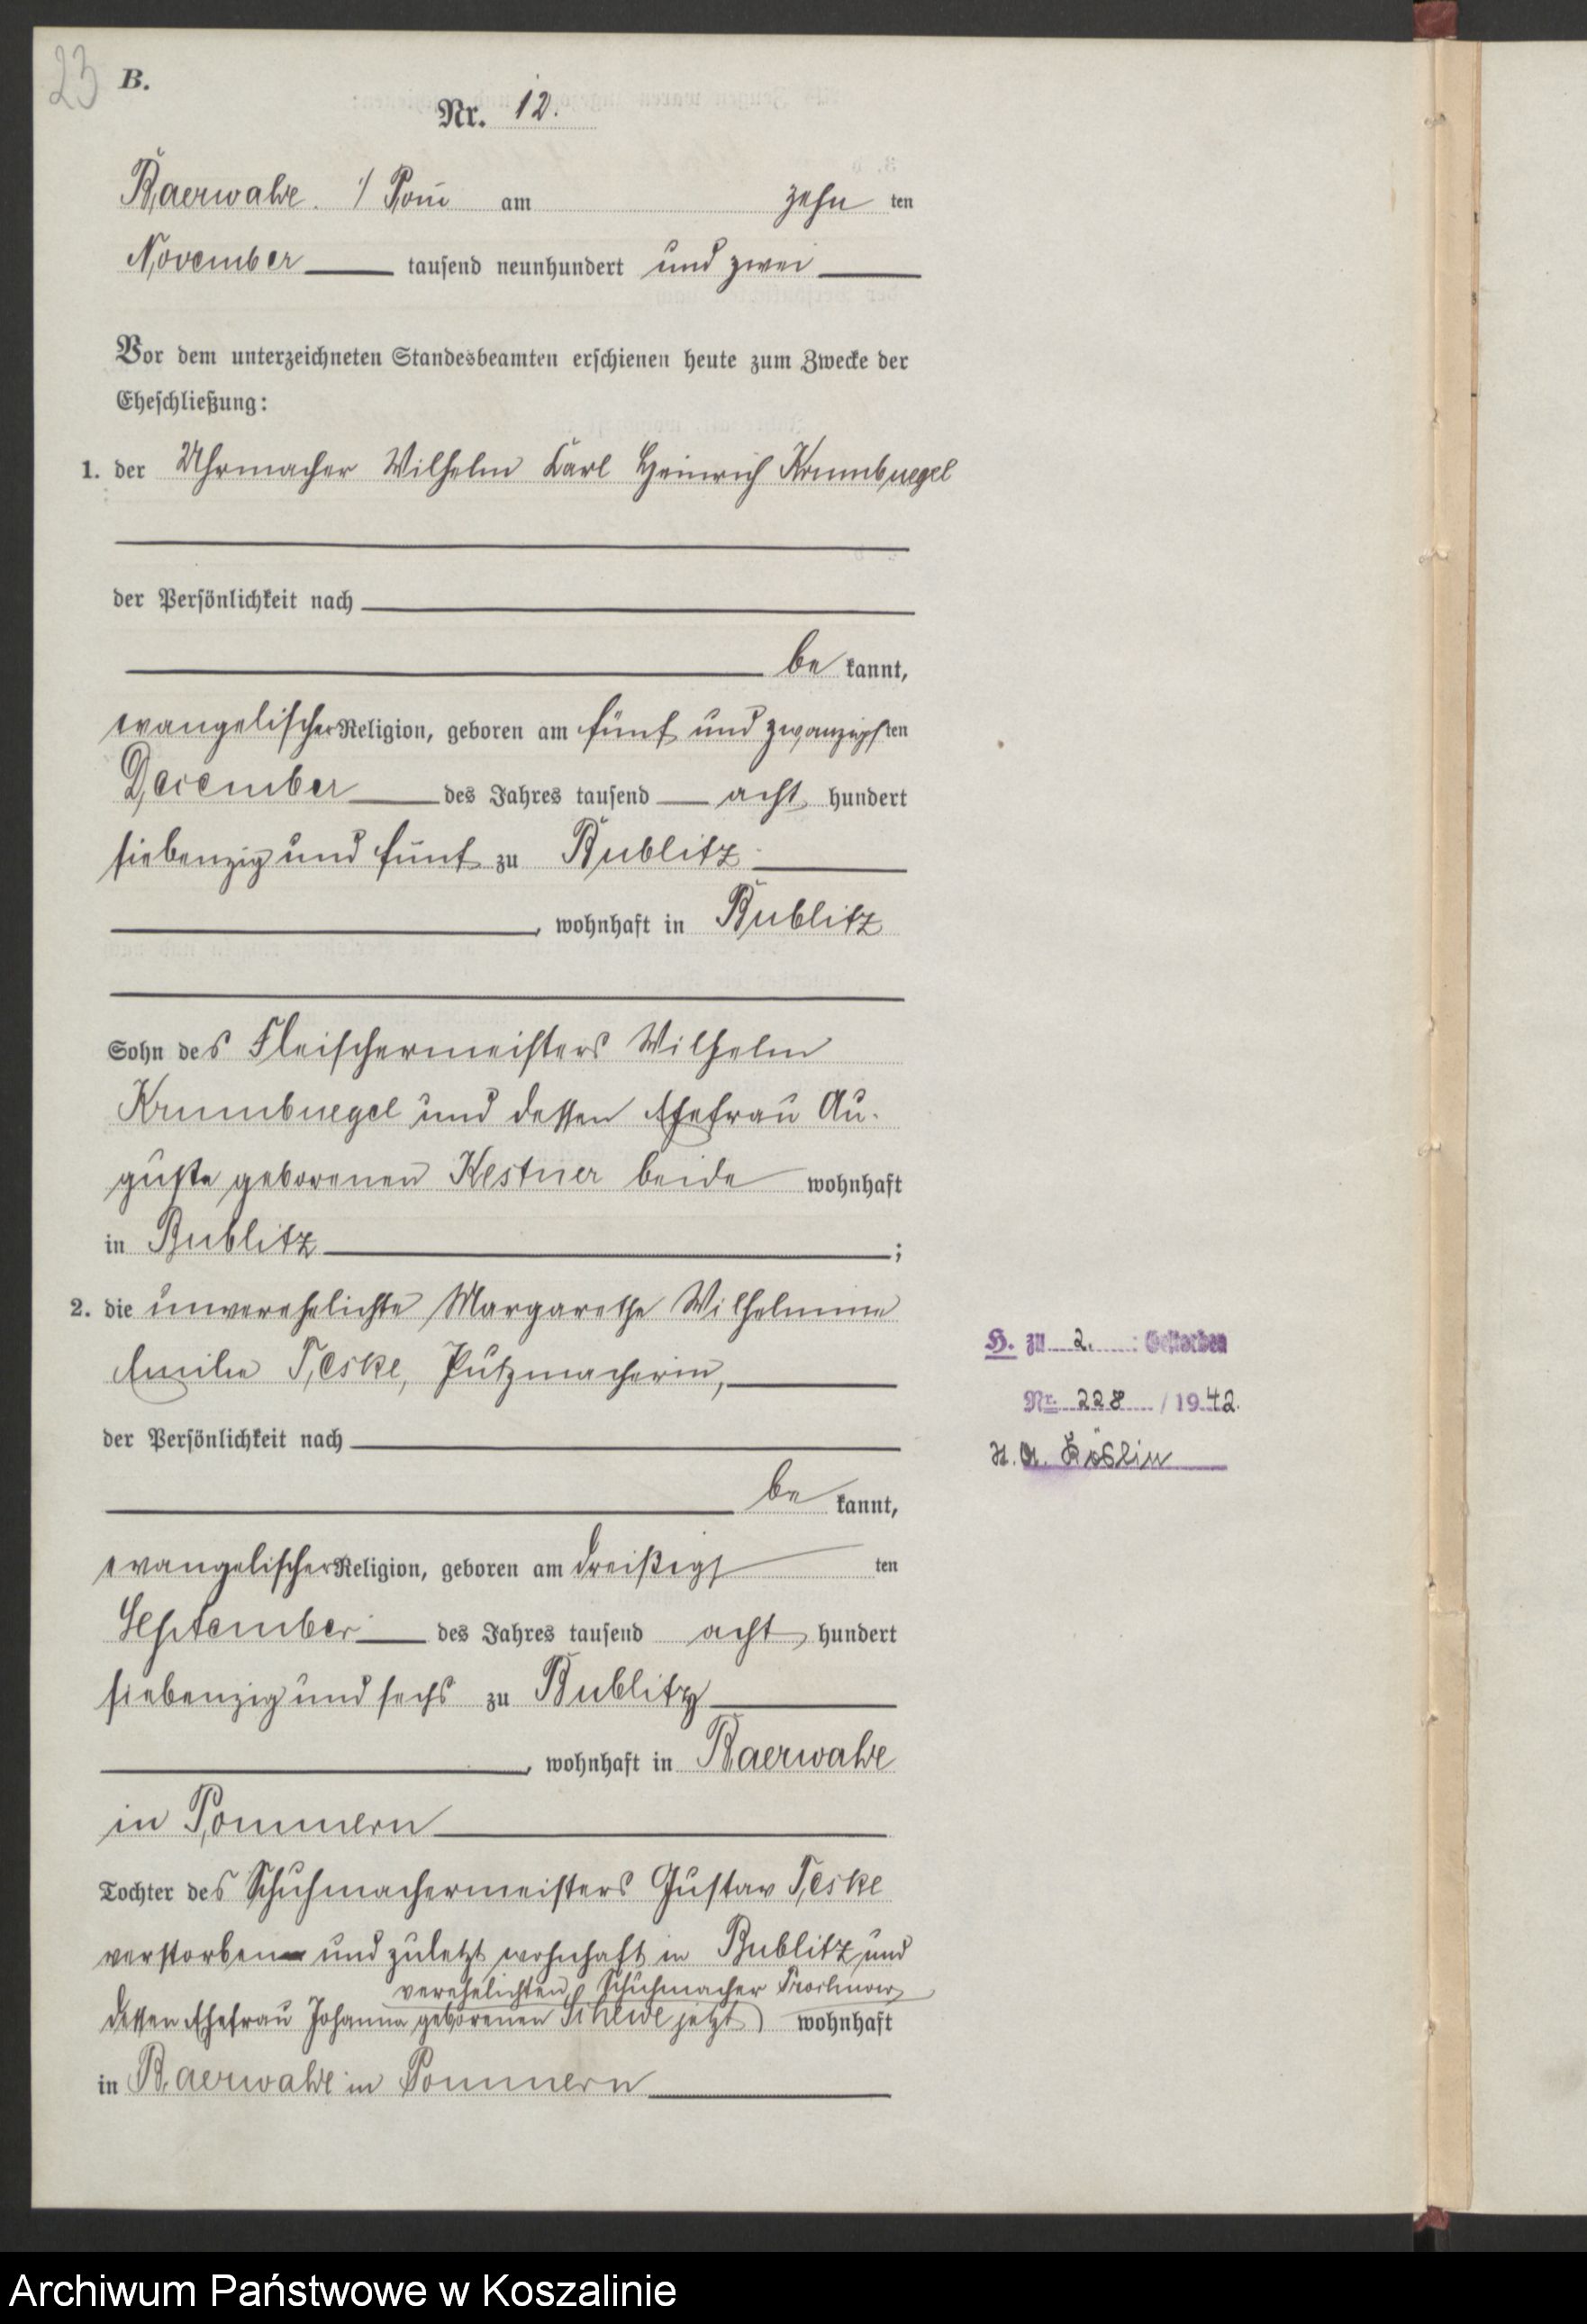 23
B.
Nr. 12.
Baerwalde i/ Pom am zehn ten
November tausend neunhundert und zwei
Vor dem unterzeichneten Standesbeamten erschienen heute zum Zwecke der
Eheschließung:
1. der Uhrmacher Wilhelm Carl Heinrich Krumbuegel
der Persönlichkeit nach
be kannt,
evangelischer Religion, geboren am fünf und zwanzigsten
December des Jahres tausend acht hundert
siebenzig und fünf zu Bublitz
, wohnhaft in Bublitz
Sohn des Fleischermeisters Wilhelm
Krumbuegel und dessen Ehefrau Au-
guste geborenen Kestner beide wohnhaft
in Bublitz ;
2. die unverehelichte Margarethe Wilhelmine
Emilie Teske, Putzmacherin,
der Persönlichkeit nach
be kannt,
evangelischer Religion, geboren am dreißigsten
September des Jahres tausend acht hundert
siebenzig und sechs zu Bublitz
, wohnhaft in Baerwalde
in Pommern
Tochter des Schuhmachermeisters Gustav Teske
verstorben und zuletzt wohnhaft in Bublitz und
verehelichten Schuhmacher
dessen Ehefrau Johanna geborenen Schewe jetzt wohnhaft
in Baerwalde in Pommern
H. zu 2. : Gestorben
Nr. 228 / 1942.
St. A. Köslin
Archiwum Państwowe w Koszalinie